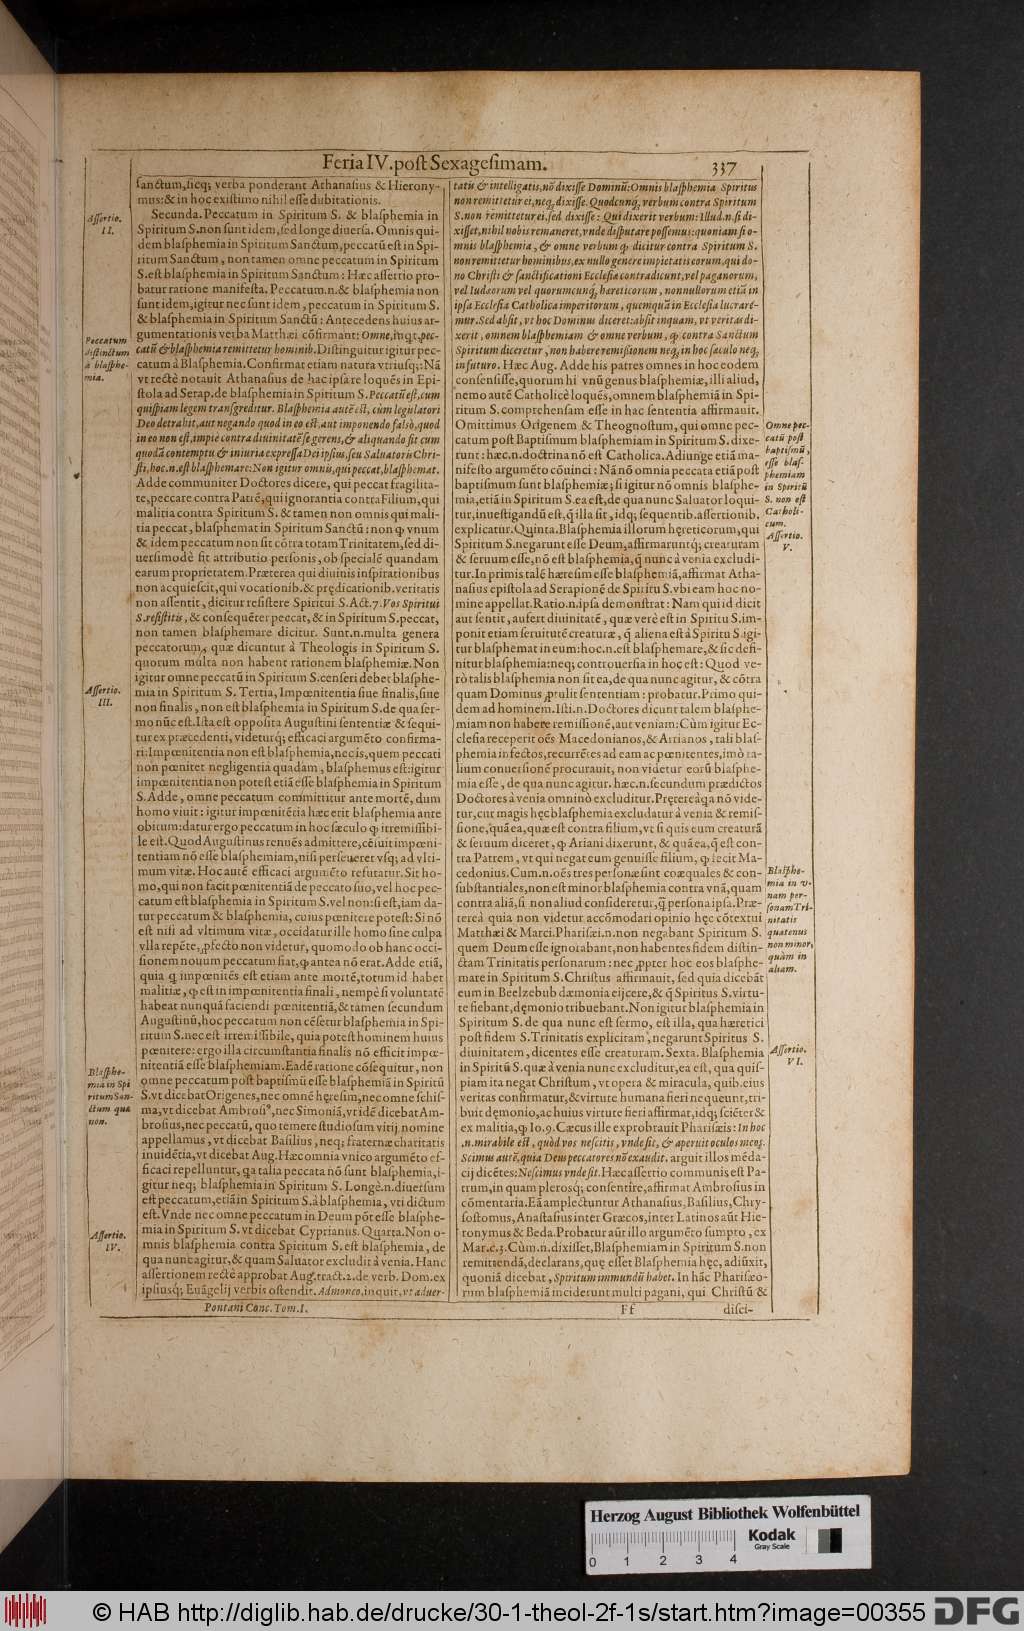 Feria IV. post Sexagesimam. 337
sanctum, sicq; verba ponderant Athanasius & Hierony-
mus: & in hoc existimo nihil esse dubitationis.
Assertio. II.
Secunda. Peccatum in Spiritum S. & blasphemia in
Spiritum S. non sunt idem, sed longe diuersa. Omnis qui-
dem blasphemia in Spiritum Sanctum, peccatū est in Spi-
ritum Sanctum, non tamen omne peccatum in Spiritum
S. est blasphemia in Spiritum Sanctum: Hæc assertio pro-
batur ratione manifesta. Peccatum. n. & blasphemia non
sunt idem, igitur nec sunt idem, peccatum in Spiritum S.
& blasphemia in Spiritum Sanctū: Antecedens huius ar-
gumentationis verba Matthæi cōfirmant: Omne, inqt, pec-
Peccatum
distinctum
à blasphe-
mia.
catū & blasphemia remittetur hominib. Distinguitur igitur pec-
catum à Blasphemia. Confirmat etiam natura vtriusq;: Nā
vt rectè notauit Athanasius de hac ipsa re loquēs in Epi-
stola ad Serap. de blasphemia in Spiritum S. Peccatū est, cum
quispiam legem transgreditur. Blasphemia autē est, cùm legislatori
Deo detrahit, aut negando quod in eo est, aut imponendo falsò, quod
in eo non est, impie contra diuinitatē se gerens, & aliquando sit cum
quodā contemptu & iniuria expressa Dei ipsius, seu Saluatoris Chri-
sti, hoc. n. est blasphemare: Non igitur omnis, qui peccat, blasphemat.
Adde communiter Doctores dicere, qui peccat fragilita-
te, peccare contra Patrē, qui ignorantia contra Filium, qui
malitia contra Spiritum S. & tamen non omnis qui mali-
tia peccat, blasphemat in Spiritum Sanctū: non ꝙ vnum
& idem peccatum non sit cōtra totam Trinitatem, sed di-
uersimodè fit attributio personis, ob specialē quandam
earum proprietatem. Præterea qui diuinis inspirationibus
non acquiescit, qui vocationib. & prędicationib. veritatis
non assentit, dicitur resistere Spiritui S. Act. 7. Vos Spiritui
S. resistitis, & consequēter peccat, & in Spiritum S. peccat,
non tamen blasphemare dicitur. Sunt. n. multa genera
peccatorum, quæ dicuntur à Theologis in Spiritum S.
quorum multa non habent rationem blasphemiæ. Non
igitur omne peccatū in Spiritum S. censeri debet blasphe-
Assertio. III.
mia in Spiritum S. Tertia, Impœnitentia siue finalis, siue
non finalis, non est blasphemia in Spiritum S. de qua ser-
mo nūc est. Ista est opposita Augustini sententiæ & sequi-
tur ex præcedenti, videturq; efficaci argumēto confirma-
ri: Impœnitentia non est blasphemia, nec is, quem peccati
non pœnitet negligentia quadam, blasphemus est: igitur
impœnitentia non potest etiā esse blasphemia in Spiritum
S. Adde, omne peccatum committitur ante mortē, dum
homo viuit: igitur impœnitētia hæc erit blasphemia ante
obitum: datur ergo peccatum in hoc sæculo ꝙ irremissibi-
le est. Quod Augustinus renuēs admittere, cēsuit impœni-
tentiam nō esse blasphemiam, nisi perseueret vsq; ad vlti-
mum vitæ. Hoc autē efficaci argumēto refutatur. Sit ho-
mo, qui non facit pœnitentiā de peccato suo, vel hoc pec-
catum est blasphemia in Spiritum S. vel non: si est, iam da-
tur peccatum & blasphemia, cuius pœnitere potest: Si nō
est nisi ad vltimum vitæ, occidatur ille homo sine culpa
vlla repēte, profecto non videtur, quomodo ob hanc occi-
sionem nouum peccatum fiat, ꝙ antea nō erat. Adde etiā,
quia ꝗ impœnitēs est etiam ante mortē, totum id habet
malitiæ, ꝙ est in impœnitentia finali, nempè si voluntatē
habeat nunquā faciendi pœnitentiā, & tamen secundum
Augustinū, hoc peccatum non cēsetur blasphemia in Spi-
ritum S. nec est irremissibile, quia potest hominem huius
pœnitere: ergo illa circumstantia finalis nō efficit impœ-
nitentiā esse blasphemiam. Eadē ratione cōsequitur, non
Blasphe-
mia in Spi
ritum San-
ctum quæ
non.
omne peccatum post baptismū esse blasphemiā in Spiritū
S. vt dicebat Origenes, nec omnē hęresim, nec omne schis-
ma, vt dicebat Ambrosiꝰ, nec Simoniā, vt idē dicebat Am-
brosius, nec peccatū, quo temere studiosum virū nomine
appellamus, vt dicebat Basilius, neq; fraternæ charitatis
inuidētia, vt dicebat Aug. Hæc omnia vnico argumēto ef-
ficaci repelluntur, ꝗa talia peccata nō sunt blasphemia, i-
gitur neq; blasphemia in Spiritum S. Longè. n. diuersum
est peccatum, etiā in Spiritum S. à blasphemia, vti dictum
est. Vnde nec omne peccatum in Deum pōt esse blasphe-
Assertio. IV.
mia in Spiritum S. vt dicebat Cyprianus. Quarta. Non o-
mnis blasphemia contra Spiritum S. est blasphemia, de
qua nunc agitur, & quam Saluator excludit à venia. Hanc
assertionem rectè approbat Aug. tract. 2. de verb. Dom. ex
ipsiusq; Euāgelij verbis ostendit. Admoneo, inquit, vt aduer-
Pontani Conc. Tom. I.
tatis & intelligatis, nō dixisse Dominū: Omnis blasphemia Spiritus
non remittetur ei, neq; dixisse. Quodcunq; verbum contra Spiritum
S. non remittetur ei. sed dixisse: Qui dixerit verbum: Illud. n. si di-
xisset, nihil nobis remaneret, vnde disputare possemus: quoniam si o-
mnis blasphemia, & omne verbum ꝙ dicitur contra Spiritum S.
non remittetur hominibus, ex nullo genere impietatis eorum, qui do-
no Christi & sanctificationi Ecclesiæ contradicunt, vel paganorum,
vel Iudæorum vel quorumcunq; hæreticorum, nonnullorum etiā in
ipsa Ecclesia Catholica imperitorum, quemquā in Ecclesia lucraré-
mur. Sed absit, vt hoc Dominus diceret: absit inquam, vt veritas di-
xerit, omnem blasphemiam & omne verbum, ꝙ contra Sanctum
Spiritum diceretur, non habere remissionem neq; in hoc sæculo neq;
in futuro. Hæc Aug. Adde his patres omnes in hoc eodem
consensisse, quorum hi vnū genus blasphemiæ, illi aliud,
nemo autē Catholicè loquēs, omnem blasphemiā in Spi-
ritum S. comprehensam esse in hac sententia affirmauit.
Omne pec-
catū post
baptismū,
esse blas-
phemiam
in Spiritū
S. non est
Catholi-
cum.
Omittimus Origenem & Theognostum, qui omne pec-
catum post Baptismum blasphemiam in Spiritum S. dixe-
runt: hæc. n. doctrina nō est Catholica. Adiunge etiā ma-
nifesto argumēto cōuinci: Nā nō omnia peccata etiā post
baptismum sunt blasphemiæ; si igitur nō omnis blasphe-
mia, etiā in Spiritum S. ea est, de qua nunc Saluator loqui-
tur, inuestigandū est, ꝗ̄ illa sit, idq; sequentib. assertionib.
Assertio. V.
explicatur. Quinta. Blasphemia illorum hęreticorum, qui
Spiritum S. negarunt esse Deum, affirmaruntq; creaturam
& seruum esse, nō est blasphemia, ꝗ̄ nunc à venia excludi-
tur. In primis talē hæresim esse blasphemiā, affirmat Atha-
nasius epistola ad Serapionē de Spiritu S. vbi eam hoc no-
mine appellat. Ratio. n. ipsa demonstrat: Nam qui id dicit
aut sentit, aufert diuinitatē, quæ verè est in Spiritu S. im-
ponit etiam seruitutē creaturæ, ꝗ̄ aliena est à Spiritu S. igi-
tur blasphemat in eum: hoc. n. est blasphemare, & sic defi-
nitur blasphemia: neq; controuersia in hoc est: Quod ve-
rò talis blasphemia non sit ea, de qua nunc agitur, & cōtra
quam Dominus protulit sententiam: probatur. Primo qui-
dem ad hominem. Isti. n. Doctores dicunt talem blasphe-
miam non habere remissionē, aut veniam: Cùm igitur Ec-
clesia receperit oēs Macedonianos, & Arrianos, tali blas-
phemia infectos, recurrētes ad eam ac pœnitentes, imò ta-
lium conuersionē procurauit, non videtur eorū blasphe-
mia esse, de qua nunc agitur. hæc. n. secundum prædictos
Doctores à venia omninò excluditur. Pręterea ꝗa nō vide-
tur, cur magis hęc blasphemia excludatur à venia & remis-
sione, quā ea, quæ est contra filium, vt si quis eum creaturā
& seruum diceret, ꝙ Ariani dixerunt, & quā ea, ꝗ̄ est con-
tra Patrem, vt qui negat eum genuisse filium, ꝙ fecit Ma-
Blasphe-
mia in v-
nam per-
sonam Tri-
nitatis
quatenus
non minor,
quàm in
aliam.
cedonius. Cum. n. oēs tres personæ sint coæquales & con-
substantiales, non est minor blasphemia contra vnā, quam
contra aliā, si non aliud consideretur, ꝗ̄ persona ipsa. Præ-
tereà quia non videtur accōmodari opinio hęc cōtextui
Matthæi & Marci. Pharisæi. n. non negabant Spiritum S.
quem Deum esse ignorabant, non habentes fidem distin-
ctam Trinitatis personarum: nec propter hoc eos blasphe-
mare in Spiritum S. Christus affirmauit, sed quia dicebāt
eum in Beelzebub dæmonia eijcere, & ꝗ̄ Spiritus S. virtu-
te fiebant, dęmonio tribuebant. Non igitur blasphemia in
Spiritum S. de qua nunc est sermo, est illa, qua hæretici
post fidem S. Trinitatis explicitam, negarunt Spiritus S.
Assertio. VI.
diuinitatem, dicentes esse creaturam. Sexta. Blasphemia
in Spiritū S. quæ à venia nunc excluditur, ea est, qua quis-
piam ita negat Christum, vt opera & miracula, quib. eius
veritas confirmatur, & virtute humana fieri nequeunt, tri-
buit dęmonio, ac huius virtute fieri affirmat, idq; sciēter &
ex malitia, ꝙ Io. 9. Cæcus ille exprobrauit Pharisæis: In hoc
.n. mirabile est, quòd vos nescitis, vnde sit, & aperuit oculos meos.
Scimus autē, quia Deus peccatores nō exaudit. arguit illos mēda-
cij dicētes: Nescimus vnde sit. Hæc assertio communis est Pa-
trum, in quam plerosq; consentire, affirmat Ambrosius in
cōmentaria. Eā amplectuntur Athanasius, Basilius, Chry-
sostomus, Anastasius inter Græcos, inter Latinos aūt Hie-
ronymus & Beda. Probatur aūt illo argumēto sumpto, ex
Mar. c. 3. Cùm. n. dixisset, Blasphemiam in Spiritum S. non
remittendā, declarans, quę esset Blasphemia hęc, adiūxit,
quoniā dicebat, Spiritum immundū habet. In hāc Pharisæo-
rum blasphemiā inciderunt multi pagani, qui Christū &
Ff disci-
Herzog August Bibliothek Wolfenbüttel
0 1 2 3 4
Kodak
Gray Scale
© HAB http://diglib.hab.de/drucke/30-1-theol-2f-1s/start.htm?image=00355 DFG